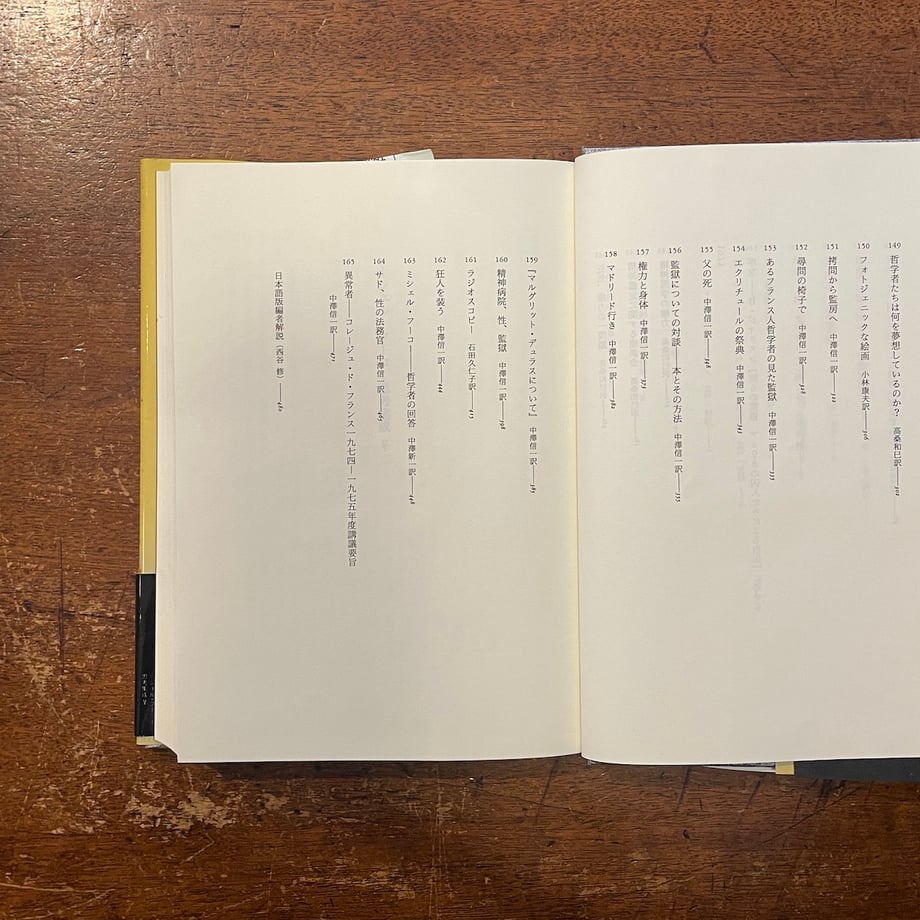 149 哲学者たちは何を夢想しているのか？ 高桑和巳訳——302
150 フォトジェニックな絵画 小林康夫訳——306
151 拷問から監房へ 中澤信一訳
152 尋問の椅子で 中澤信一訳——328
153 あるフランス人哲学者の見た監獄 中澤信一訳
154 エクリチュールの祭典 中澤信一訳
155 父の死 中澤信一訳
156 監獄についての対談——本とその方法 中澤信一訳
157 権力と身体 中澤信一訳
158 マドリード行き 中澤信一訳
159 『マルグリット・デュラスについて』 中澤信一訳
160 精神病院、性、監獄 中澤信一訳
161 ラジオスコピー 石田久仁子訳
162 狂人を装う 中澤信一訳
163 ミシェル・フーコー——哲学者の回答 中澤新一訳
164 サド、性の法務官 中澤信一訳
165 異常者——コレージュ・ド・フランス一九七四—一九七五年度講議要旨
中澤信一訳——471
日本語版編者解説（西谷 修）